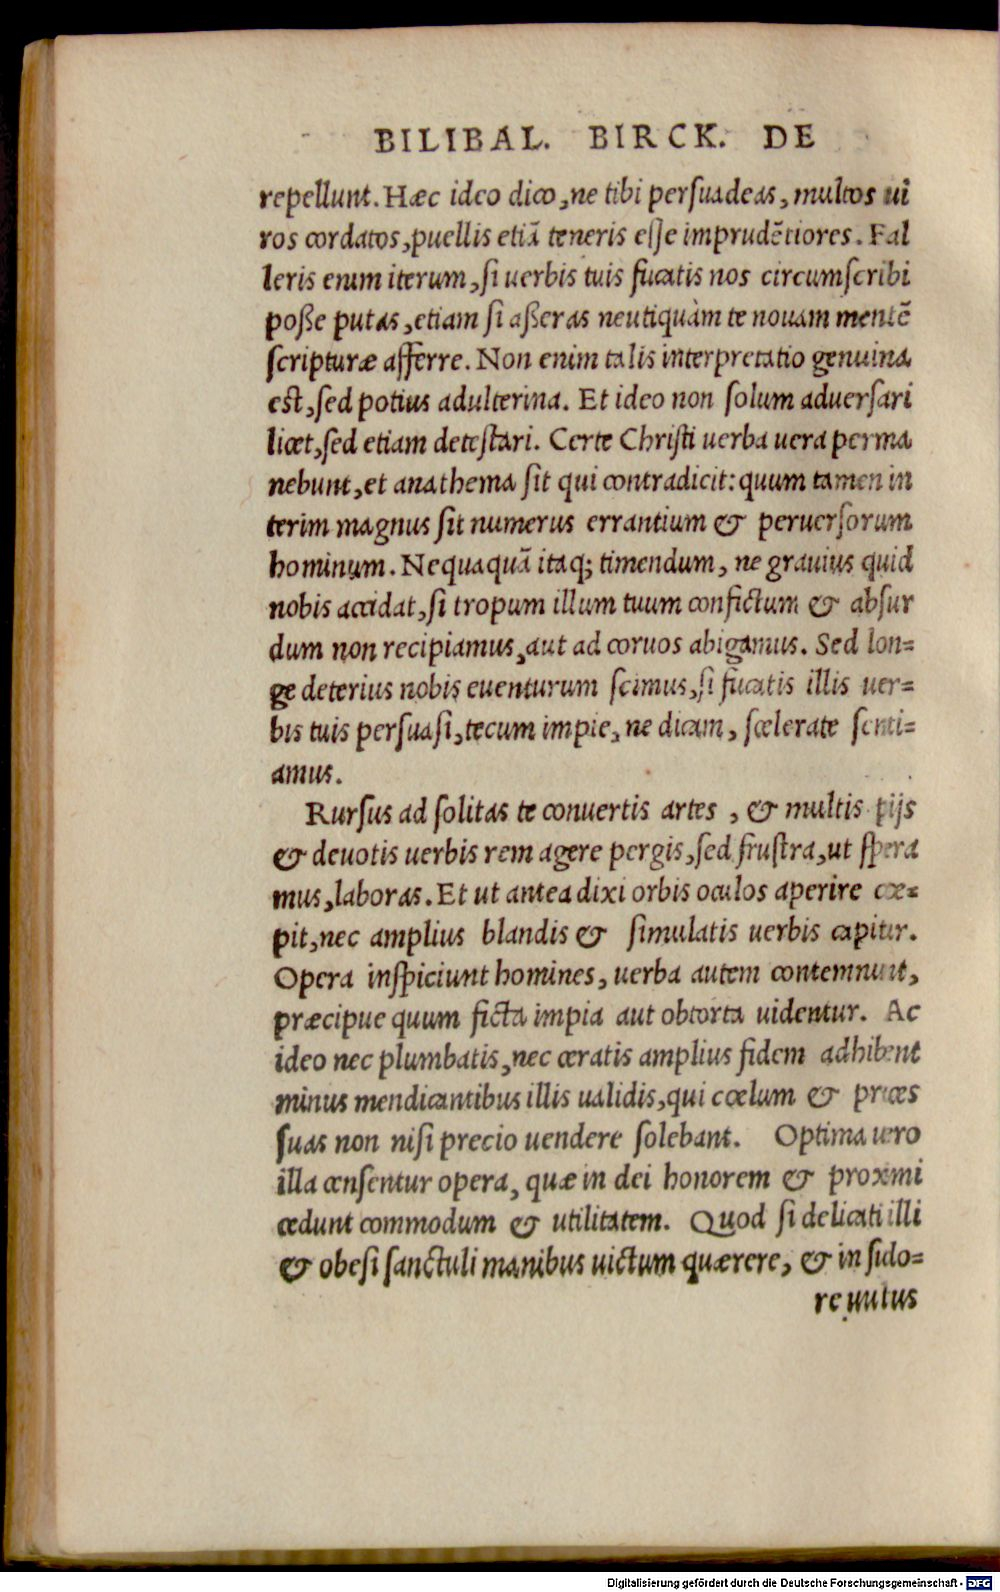 BILIBAL. BIRCK. DE
repellunt. Hæc ideo dico, ne tibi persuadeas, multos ui
ros cordatos, puellis etiā teneris esse imprudētiores. Fal
leris enim iterum, si uerbis tuis fucatis nos circumscribi
posse putas, etiam si asseras neutiquàm te nouam mentē
scripturæ afferre. Non enim talis interpretatio genuina
est, sed potius adulterina. Et ideo non solum aduersari
licet, sed etiam detestari. Certe Christi uerba uera perma
nebunt, et anathema sit qui contradicit: quum tamen in
terim magnus sit numerus errantium & peruersorum
hominum. Nequaquā itaq; timendum, ne grauius quid
nobis accidat, si tropum illum tuum confictum & absur
dum non recipiamus, aut ad coruos abigamus. Sed lon=
ge deterius nobis euenturum scimus, si fucatis illis uer=
bis tuis persuasi, tecum impie, ne dicam, scelerate senti=
amus.
Rursus ad solitas te conuertis artes, & multis pijs
& deuotis uerbis rem agere pergis, sed frustra, ut spera
mus, laboras. Et ut antea dixi orbis oculos aperire cœ=
pit, nec amplius blandis & simulatis uerbis capitur.
Opera inspiciunt homines, uerba autem contemnunt,
præcipue quum ficta impia aut obtorta uidentur. Ac
ideo nec plumbatis, nec ceratis amplius fidem adhibent
minus mendicantibus illis ualidis, qui cœlum & preces
suas non nisi precio uendere solebant. Optima uero
illa censentur opera, quæ in dei honorem & proximi
cedunt commodum & utilitatem. Quod si delicati illi
& obesi sanctuli manibus uictum quærere, & in sudo=
re uultus
Digitalisierung gefördert durch die Deutsche Forschungsgemeinschaft - DFG